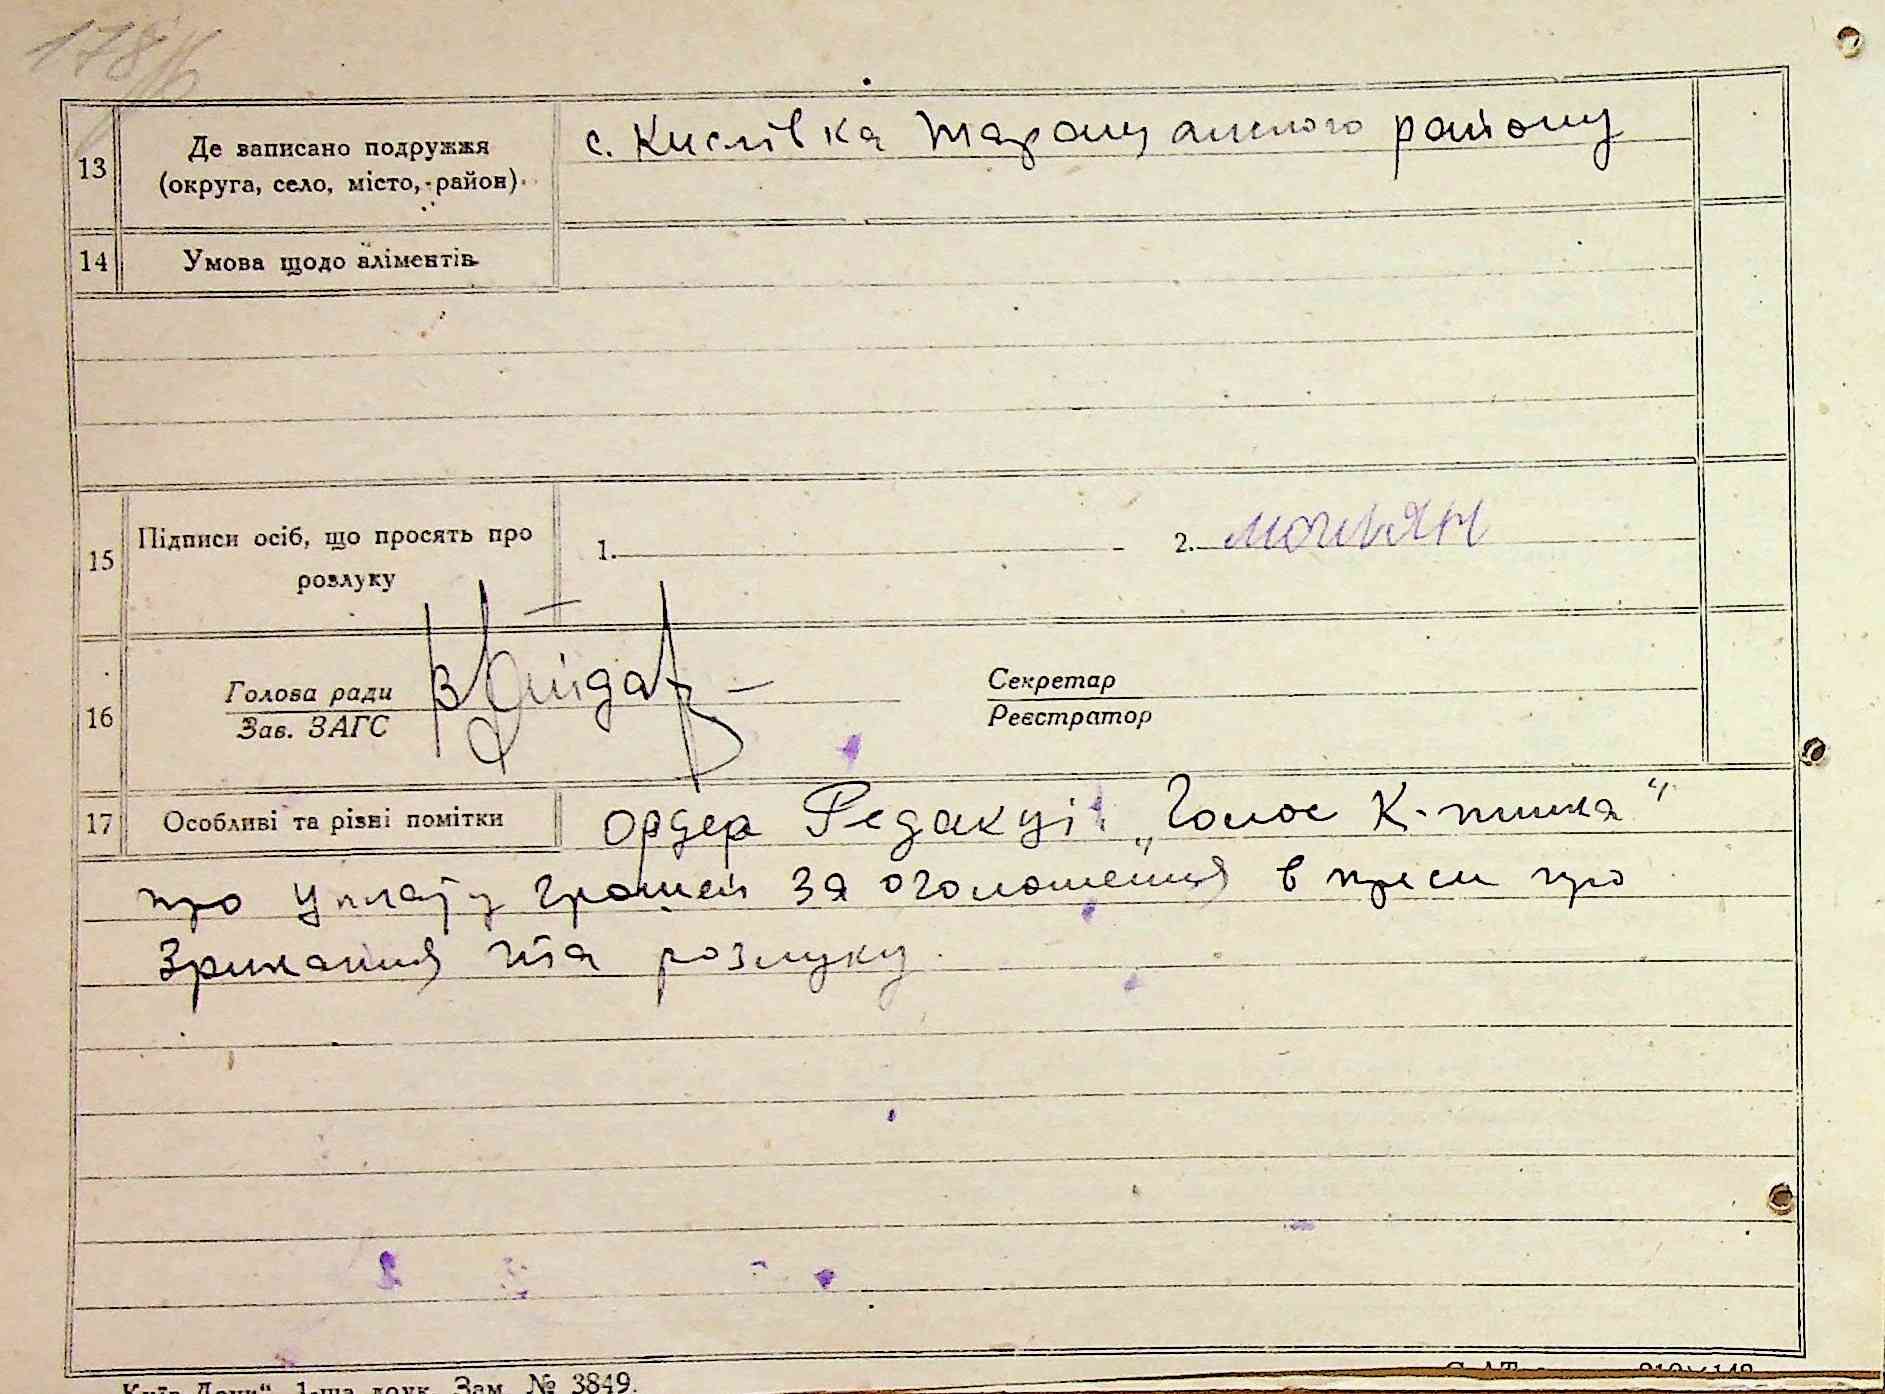 178
13 Де записано подружжя (округа, село, місто, район) с. Кислівка Таращанского району
14 Умова щодо аліментів
15 Підписи осіб, що просять про розлуку 1. 2.
16 Голова ради
Зав. ЗАГС
Секретар
Реєстратор
17 Особливі та різні помітки ордер Редакції „Голос К-пника"
про уплату грошей за оголошення в преси про
зрикання та розлуку.
1-ша друк. Зам. № 3849.